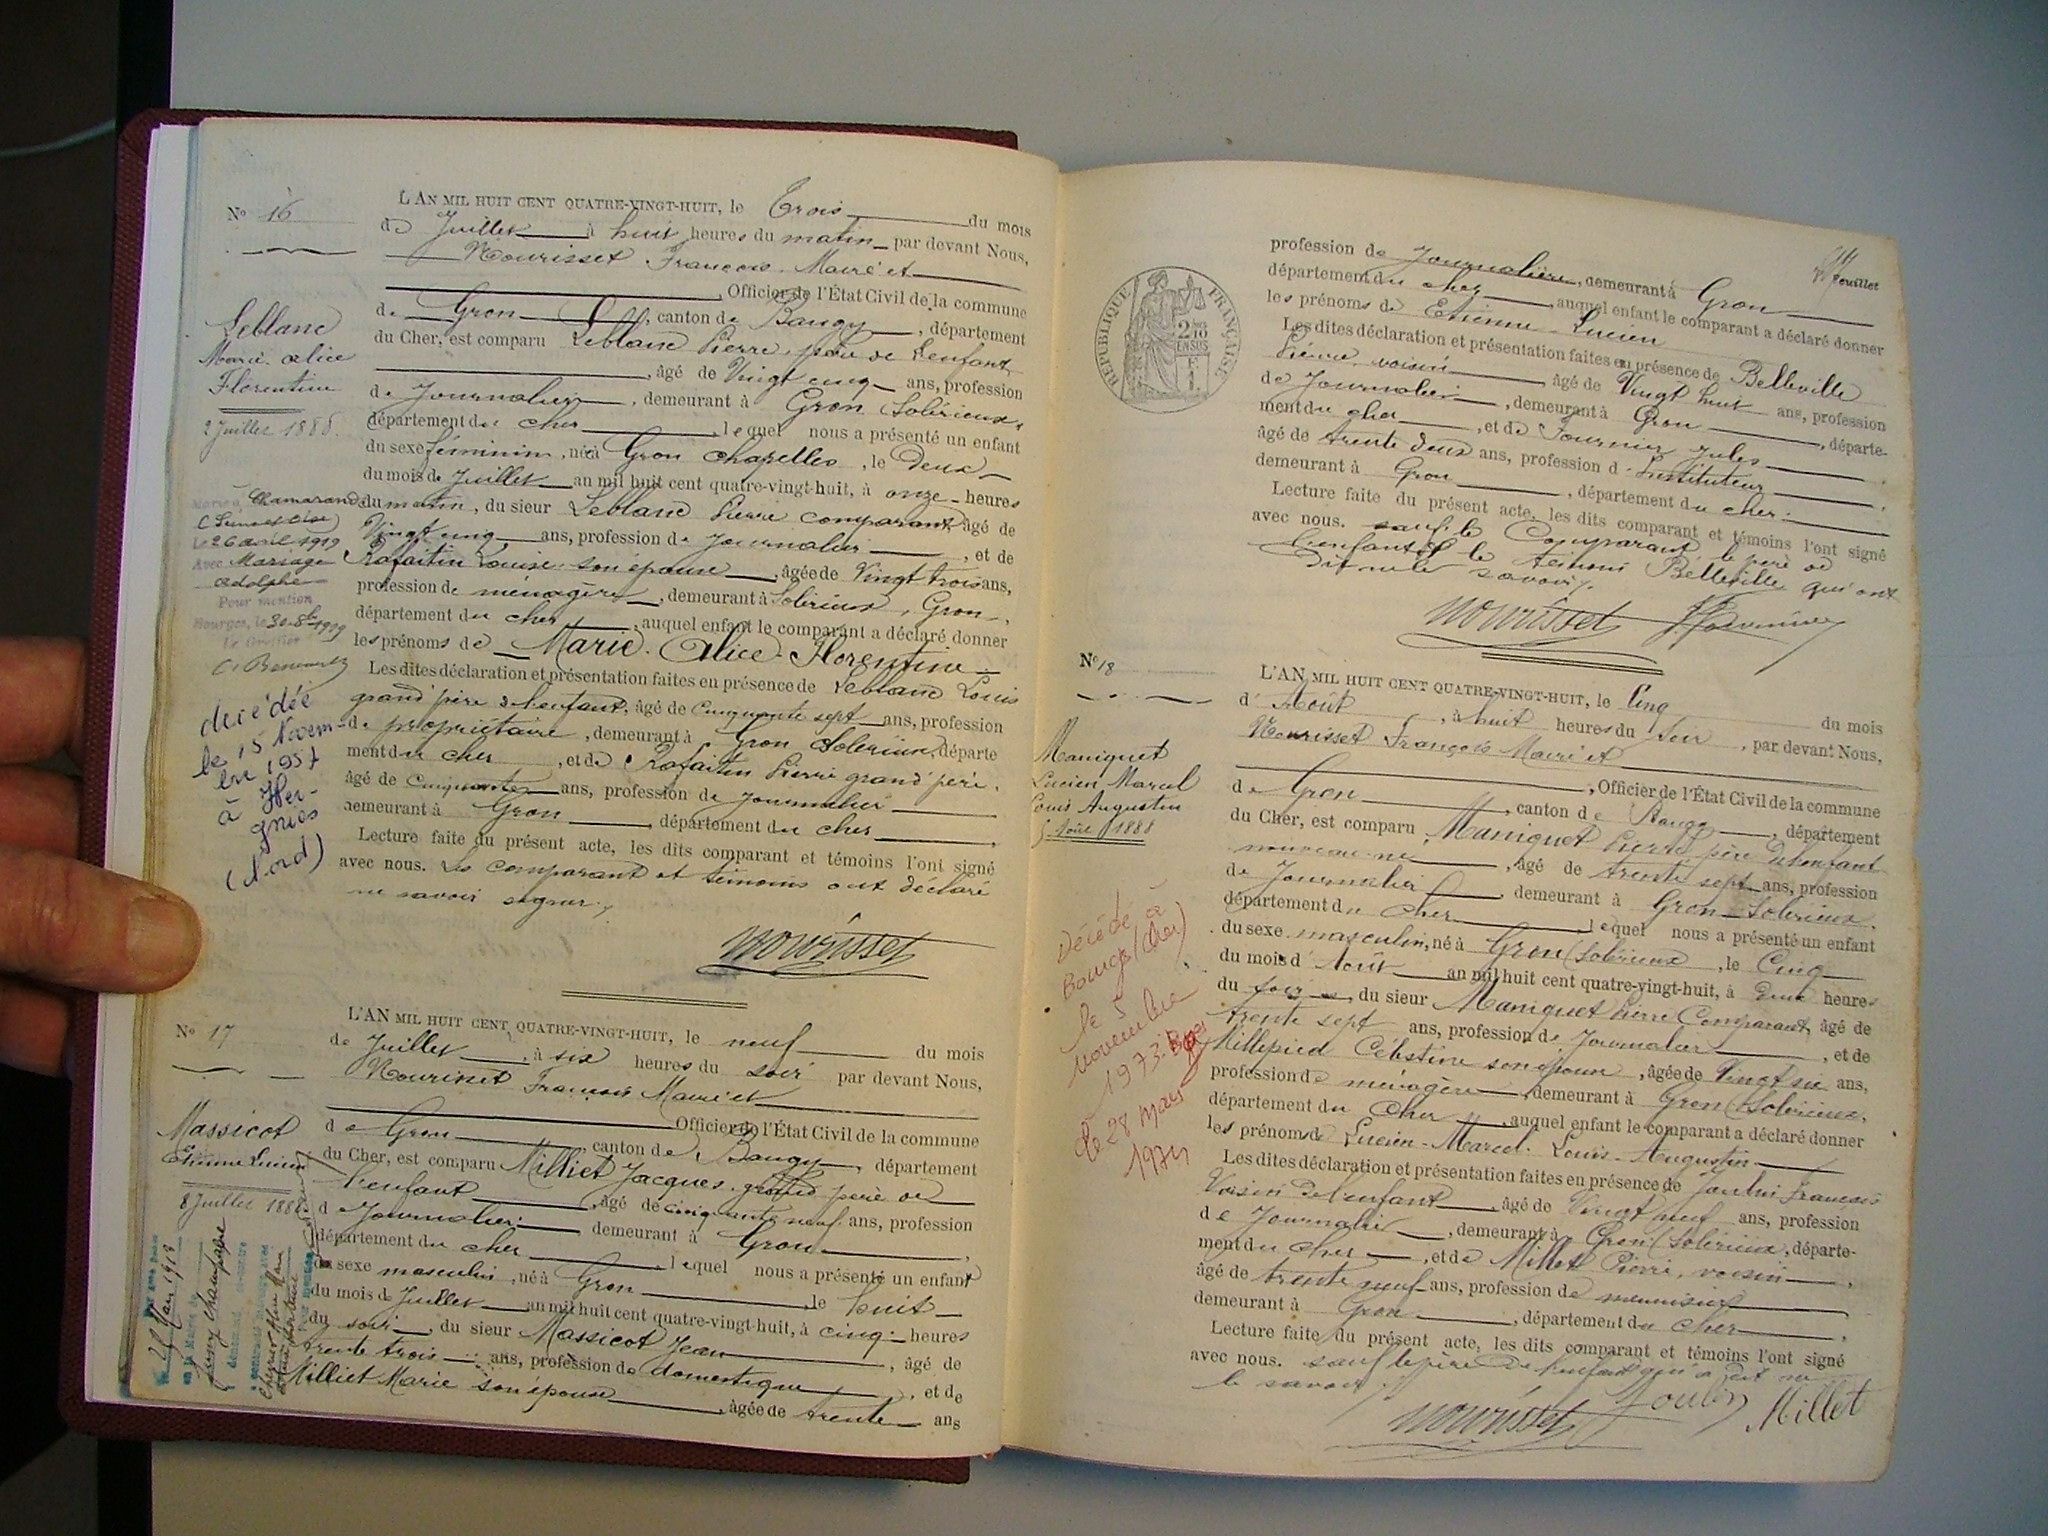 N° 16
Leblanc
Marie-alice
Florentine
2 Juillet 1888.
Chamarand
(Seine et Oise)
Le 26 avril 1919
Avec Mariage
adolphe
Pour mention
Bourges, le 30-8bre 1919
Le Greffier
décédée
le 15 Novem-
bre 1957
à Her-
gnies
(Nord)
L'AN MIL HUIT CENT QUATRE-VINGT-HUIT, le Trois du mois
de Juillet à huit heures du matin par devant Nous,
Nourisset François Maire et
, Officier de l'État Civil de la commune
de Gron, canton de Baugy, département
du Cher, est comparu Leblanc Pierre, père de l'enfant
, âgé de Vingt cinq ans, profession
de Journalier, demeurant à Gron (Solérieux,
département du cher, lequel nous a présenté un enfant
du sexe féminin, née à Gron chapelles, le Deux
du mois de Juillet an mil huit cent quatre-vingt-huit, à onze heures
du matin, du sieur Leblanc Pierre comparant, âgé de
Vingt cinq ans, profession de Journalier, et de
Rafaitin Louise son épouse, âgée de Vingt trois ans,
profession de ménagère, demeurant à Solérieux, Gron,
département du cher, auquel enfant le comparant a déclaré donner
les prénoms de Marie-Alice-Florentine
Les dites déclaration et présentation faites en présence de Leblanc Louis
grand'père de l'enfant, âgé de Cinquante sept ans, profession
de propriétaire, demeurant à Gron Solerieux, départe
ment du cher, et de Rafaitin Pierre grand'père,
âgé de Cinquante ans, profession de Journalier
demeurant à Gron, département du cher,
Lecture faite du présent acte, les dits comparant et témoins l'ont signé
avec nous. Les comparant et témoins ont déclaré
ne savoir signer.
Nourisset
N° 17
Massicot
Etienne Lucien
8 Juillet 1888
25 Mars 1918
L'AN MIL HUIT CENT QUATRE-VINGT-HUIT, le neuf du mois
de Juillet, à six heures du soir par devant Nous,
Nourisset François Maire et
Officier de l'État Civil de la commune
de Gron canton de Baugy, département
du Cher, est comparu Milliet Jacques, grand père de
l'enfant, âgé de cinquante neuf ans, profession
de Journalier demeurant à Gron,
département du cher lequel nous a présenté un enfant
du sexe masculin, né à Gron, le huit
du mois de Juillet an mil huit cent quatre-vingt-huit, à cinq heures
du soir, du sieur Massicot Jean, âgé de
trente trois ans, profession de domestique, et de
Milliet Marie son épouse, âgée de trente ans
feuillet
RÉPUBLIQUE FRANÇAISE
2/10 EN SUS
profession de Journalière, demeurant à Gron
département du cher, auquel enfant le comparant a déclaré donner
les prénoms de Etienne-Lucien
Les dites déclaration et présentation faites en présence de Belleville
Pierre voisin âgé de Vingt huit ans, profession
de Journalier, demeurant à Gron, départe-
ment du cher, et de Fournier Jules
âgé de trente deux ans, profession d'Instituteur,
demeurant à Gron, département du cher.
Lecture faite du présent acte, les dits comparant et témoins l'ont signé
avec nous. sauf le Comparant le père de
l'enfant & le témoins Belleville qui ont
Dit ne le savoir.
Nourisset J. Fournier
N° 18
Maniquet
Lucien Marcel
Louis Augustin
5 Août 1888
Décédé à
Bourges (Cher)
le 5
novembre
1973.
le 28 mars
1974
L'AN MIL HUIT CENT QUATRE-VINGT-HUIT, le Cinq du mois
d'Août, à huit heures du Soir, par devant Nous,
Nourisset François Maire et
, Officier de l'État Civil de la commune
de Gron, canton de Baugy, département
du Cher, est comparu Maniquet Pierre père de l'enfant
nouveau-né, âgé de trente sept ans, profession
de Journalier, demeurant à Gron-Solérieux,
département du cher, lequel nous a présenté un enfant
du sexe masculin, né à Gron (Solérieux, le Cinq
du mois d'Août an mil huit cent quatre-vingt-huit, à Deux heures
du soir, du sieur Maniquet Pierre Comparant, âgé de
trente sept ans, profession de Journalier, et de
Millepied Célestine son épouse, âgée de Vingt six ans,
profession de ménagère, demeurant à Gron (Solérieux,
département du Cher, auquel enfant le comparant a déclaré donner
les prénoms de Lucien-Marcel-Louis-Augustin
Les dites déclaration et présentation faites en présence de Joulin François
Voisin de l'enfant, âgé de Vingt neuf ans, profession
de Journalier, demeurant à Gron (Solérieux, départe-
ment du cher, et de Millet Pierre, voisin,
âgé de trente neuf ans, profession de menuisier
demeurant à Gron, département du cher,
Lecture faite du présent acte, les dits comparant et témoins l'ont signé
avec nous. sauf le père de l'enfant qui a dit ne
le savoir.
Nourisset Joulin Millet